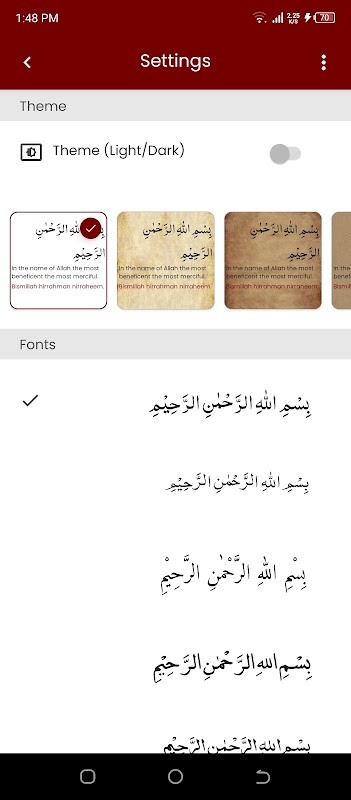 1:48 PM
2.25 K/S
70
Settings
Theme
Theme (Light/Dark)
بِسْمِ اللهِ الرَّحْمٰنِ
الرَّحِيْمِ
In the name of Allah the most
beneficent the most merciful.
Bismillah hirrahman nirraheem.
بِسْمِ اللهِ الرَّحْمٰنِ
الرَّحِيْمِ
In the name of Allah the most
beneficent the most merciful.
Bismillah hirrahman nirraheem.
بِسْمِ اللهِ الرَّحْمٰنِ
الرَّحِيْمِ
In the name of Allah the most
beneficent the most merciful.
Bismillah hirrahman nirraheem.
In
be
Bis
Fonts
بِسْمِ اللهِ الرَّحْمٰنِ الرَّحِيْمِ
بِسْمِ اللهِ الرَّحْمٰنِ الرَّحِيْمِ
بِسْمِ اللهِ الرَّحْمٰنِ الرَّحِيْمِ
بِسْمِ اللهِ الرَّحْمٰنِ الرَّحِيْمِ
بِسْمِ اللهِ الرَّحْمٰنِ الرَّحِيْمِ